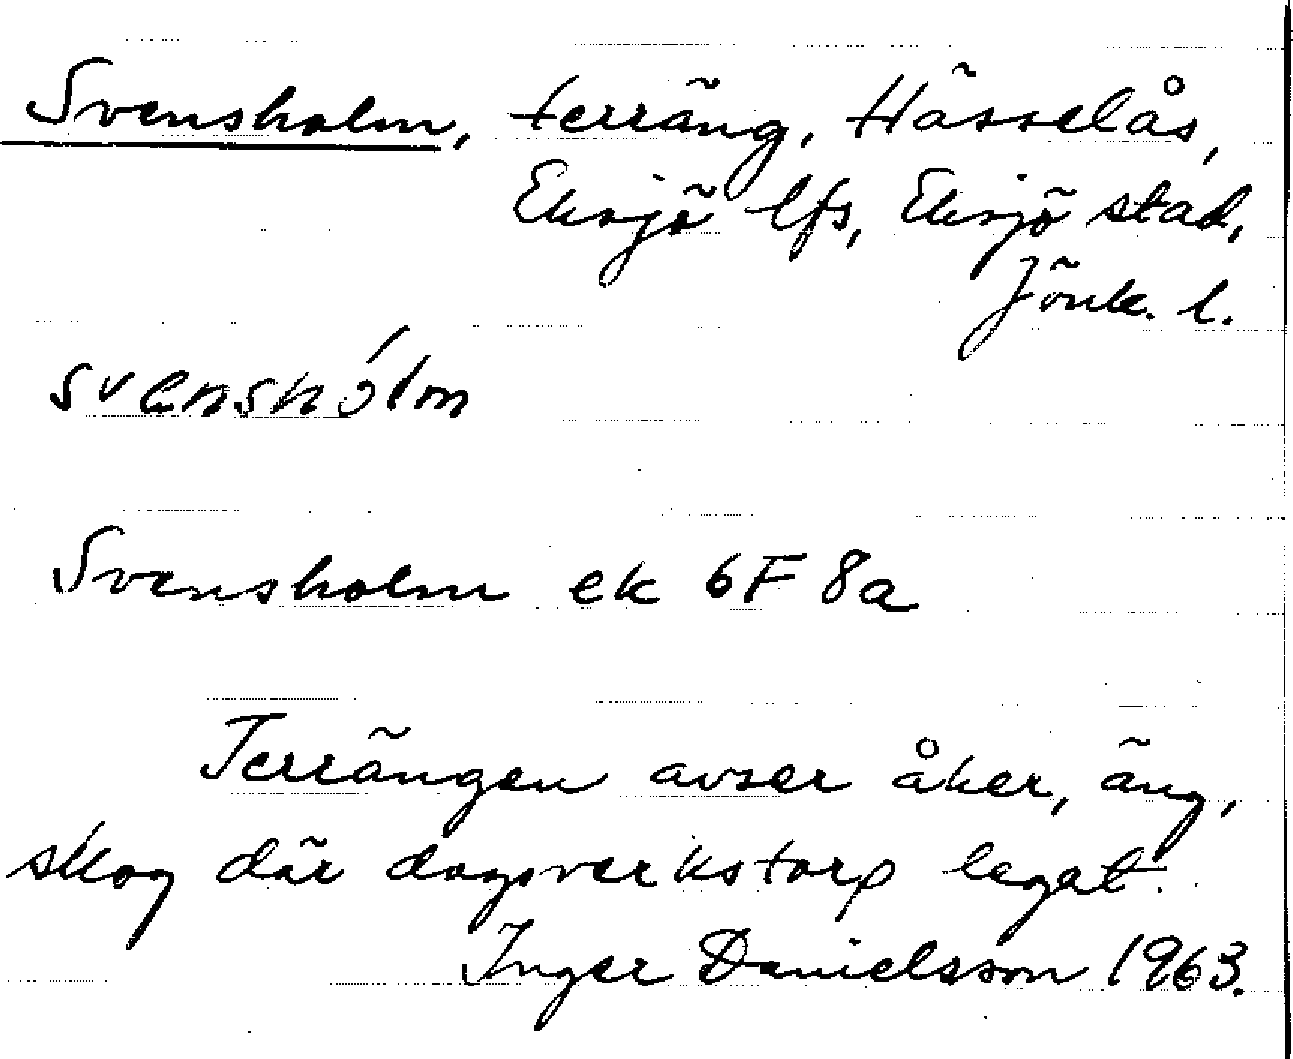 Svensholm, terräng, Hässelås,
Eksjö lfs, Eksjö stad,
Jönk. l.
svenshólm
Svensholm ek 6F 8a
Terrängen avser åker, äng,
skog där dagsverkstorp legat.
Inger Danielsson 1963.